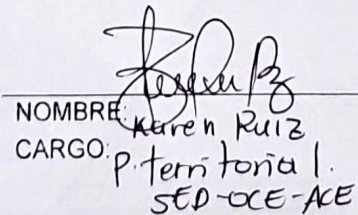 NOMBRE: Karen Ruiz
CARGO: P. territorial.
SED-OCE-ACE